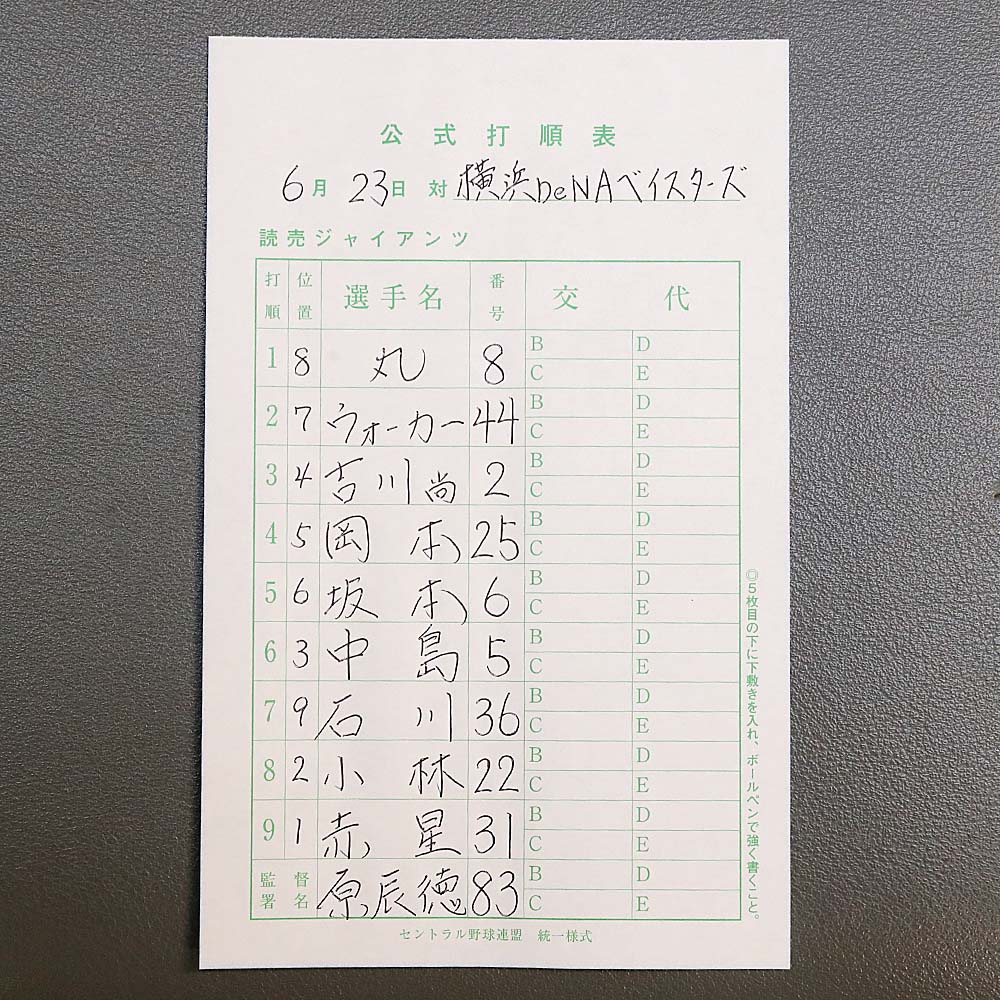 公式打順表
6月 23日 対 横浜DeNAベイスターズ
読売ジャイアンツ
打順 位置 選手名 番号 交代
1 8 丸 8 B D
C E
2 7 ウォーカー 44 B D
C E
3 4 吉川尚 2 B D
C E
4 5 岡本 25 B D
C E
5 6 坂本 6 B D
C E
6 3 中島 5 B D
C E
7 9 石川 36 B D
C E
8 2 小林 22 B D
C E
9 1 赤星 31 B D
C E
監督署名 原辰徳 83 B D
C E
◎5枚目の下に下敷きを入れ、ボールペンで強く書くこと。
セントラル野球連盟 統一様式